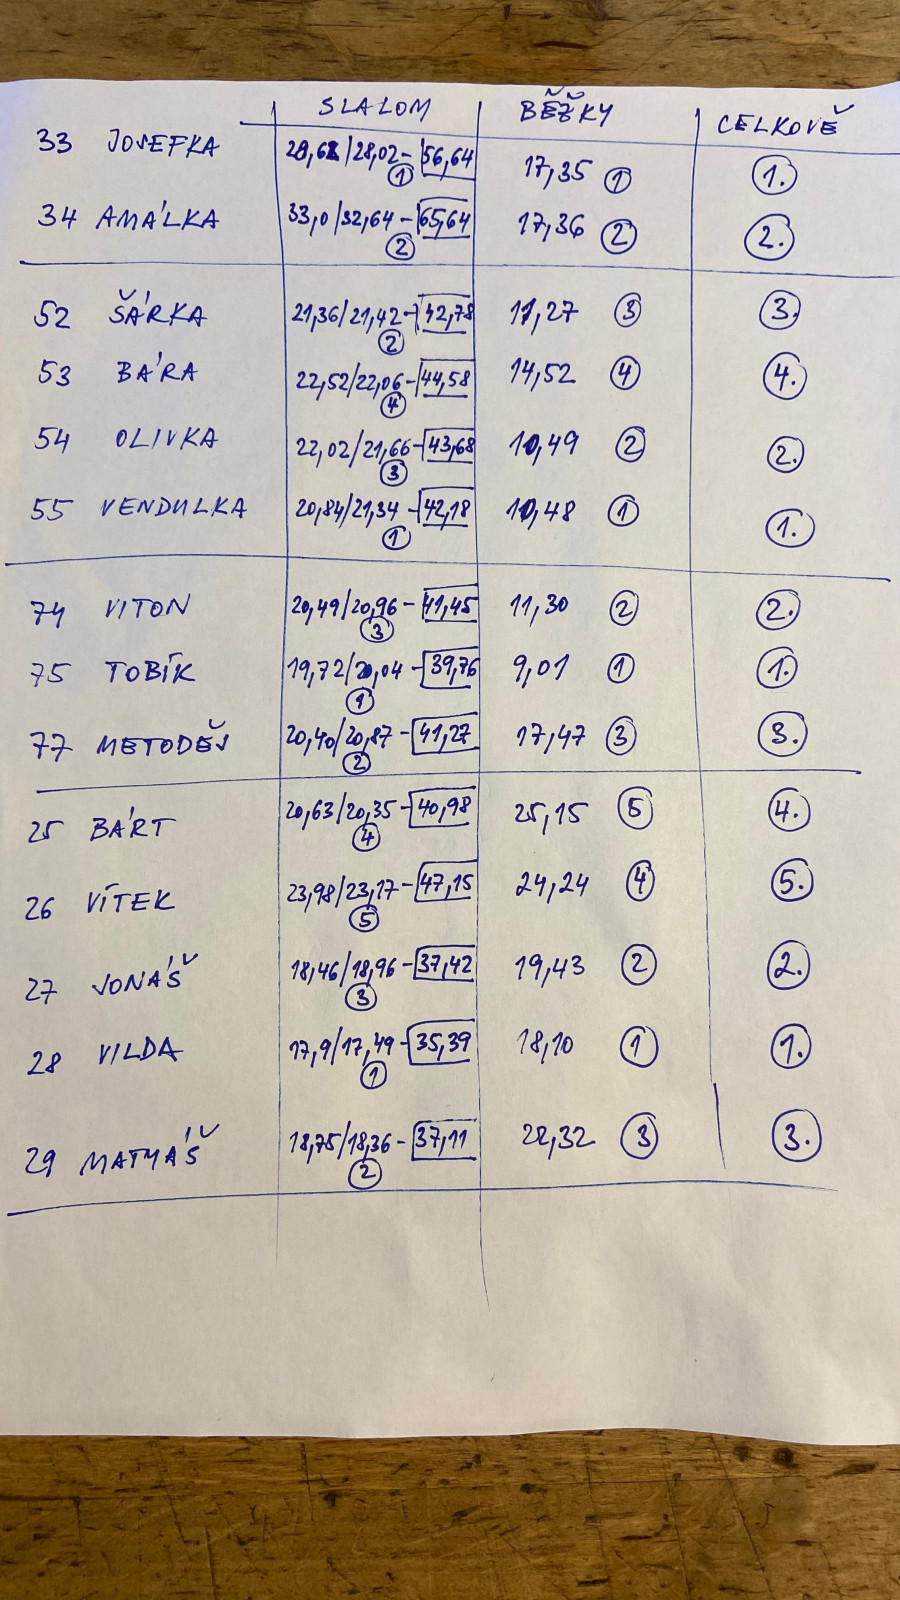 SLALOM BĚŽKY CELKOVĚ
33 JOSEFKA 28,62/28,02-56,64 1 17,35 1 1.
34 AMÁLKA 33,0/32,64-65,64 2 17,36 2 2.
52 ŠÁRKA 21,36/21,42-42,78 2 11,27 3 3.
53 BÁRA 22,52/22,06-44,58 4 14,52 4 4.
54 OLIVKA 22,02/21,66-43,68 3 10,49 2 2.
55 VENDULKA 20,84/21,34-42,18 1 10,48 1 1.
74 VITON 20,49/20,96-41,45 3 11,30 2 2.
75 TOBÍK 19,72/20,04-39,76 1 9,01 1 1.
77 METODĚJ 20,40/20,87-41,27 2 17,47 3 3.
25 BÁRT 20,63/20,35-40,98 4 25,15 5 4.
26 VÍTEK 23,98/23,17-47,15 5 24,24 4 5.
27 JONÁŠ 18,46/18,96-37,42 3 19,43 2 2.
28 VILDA 17,9/17,49-35,39 1 18,10 1 1.
29 MATYÁŠ 18,75/18,36-37,11 2 22,32 3 3.